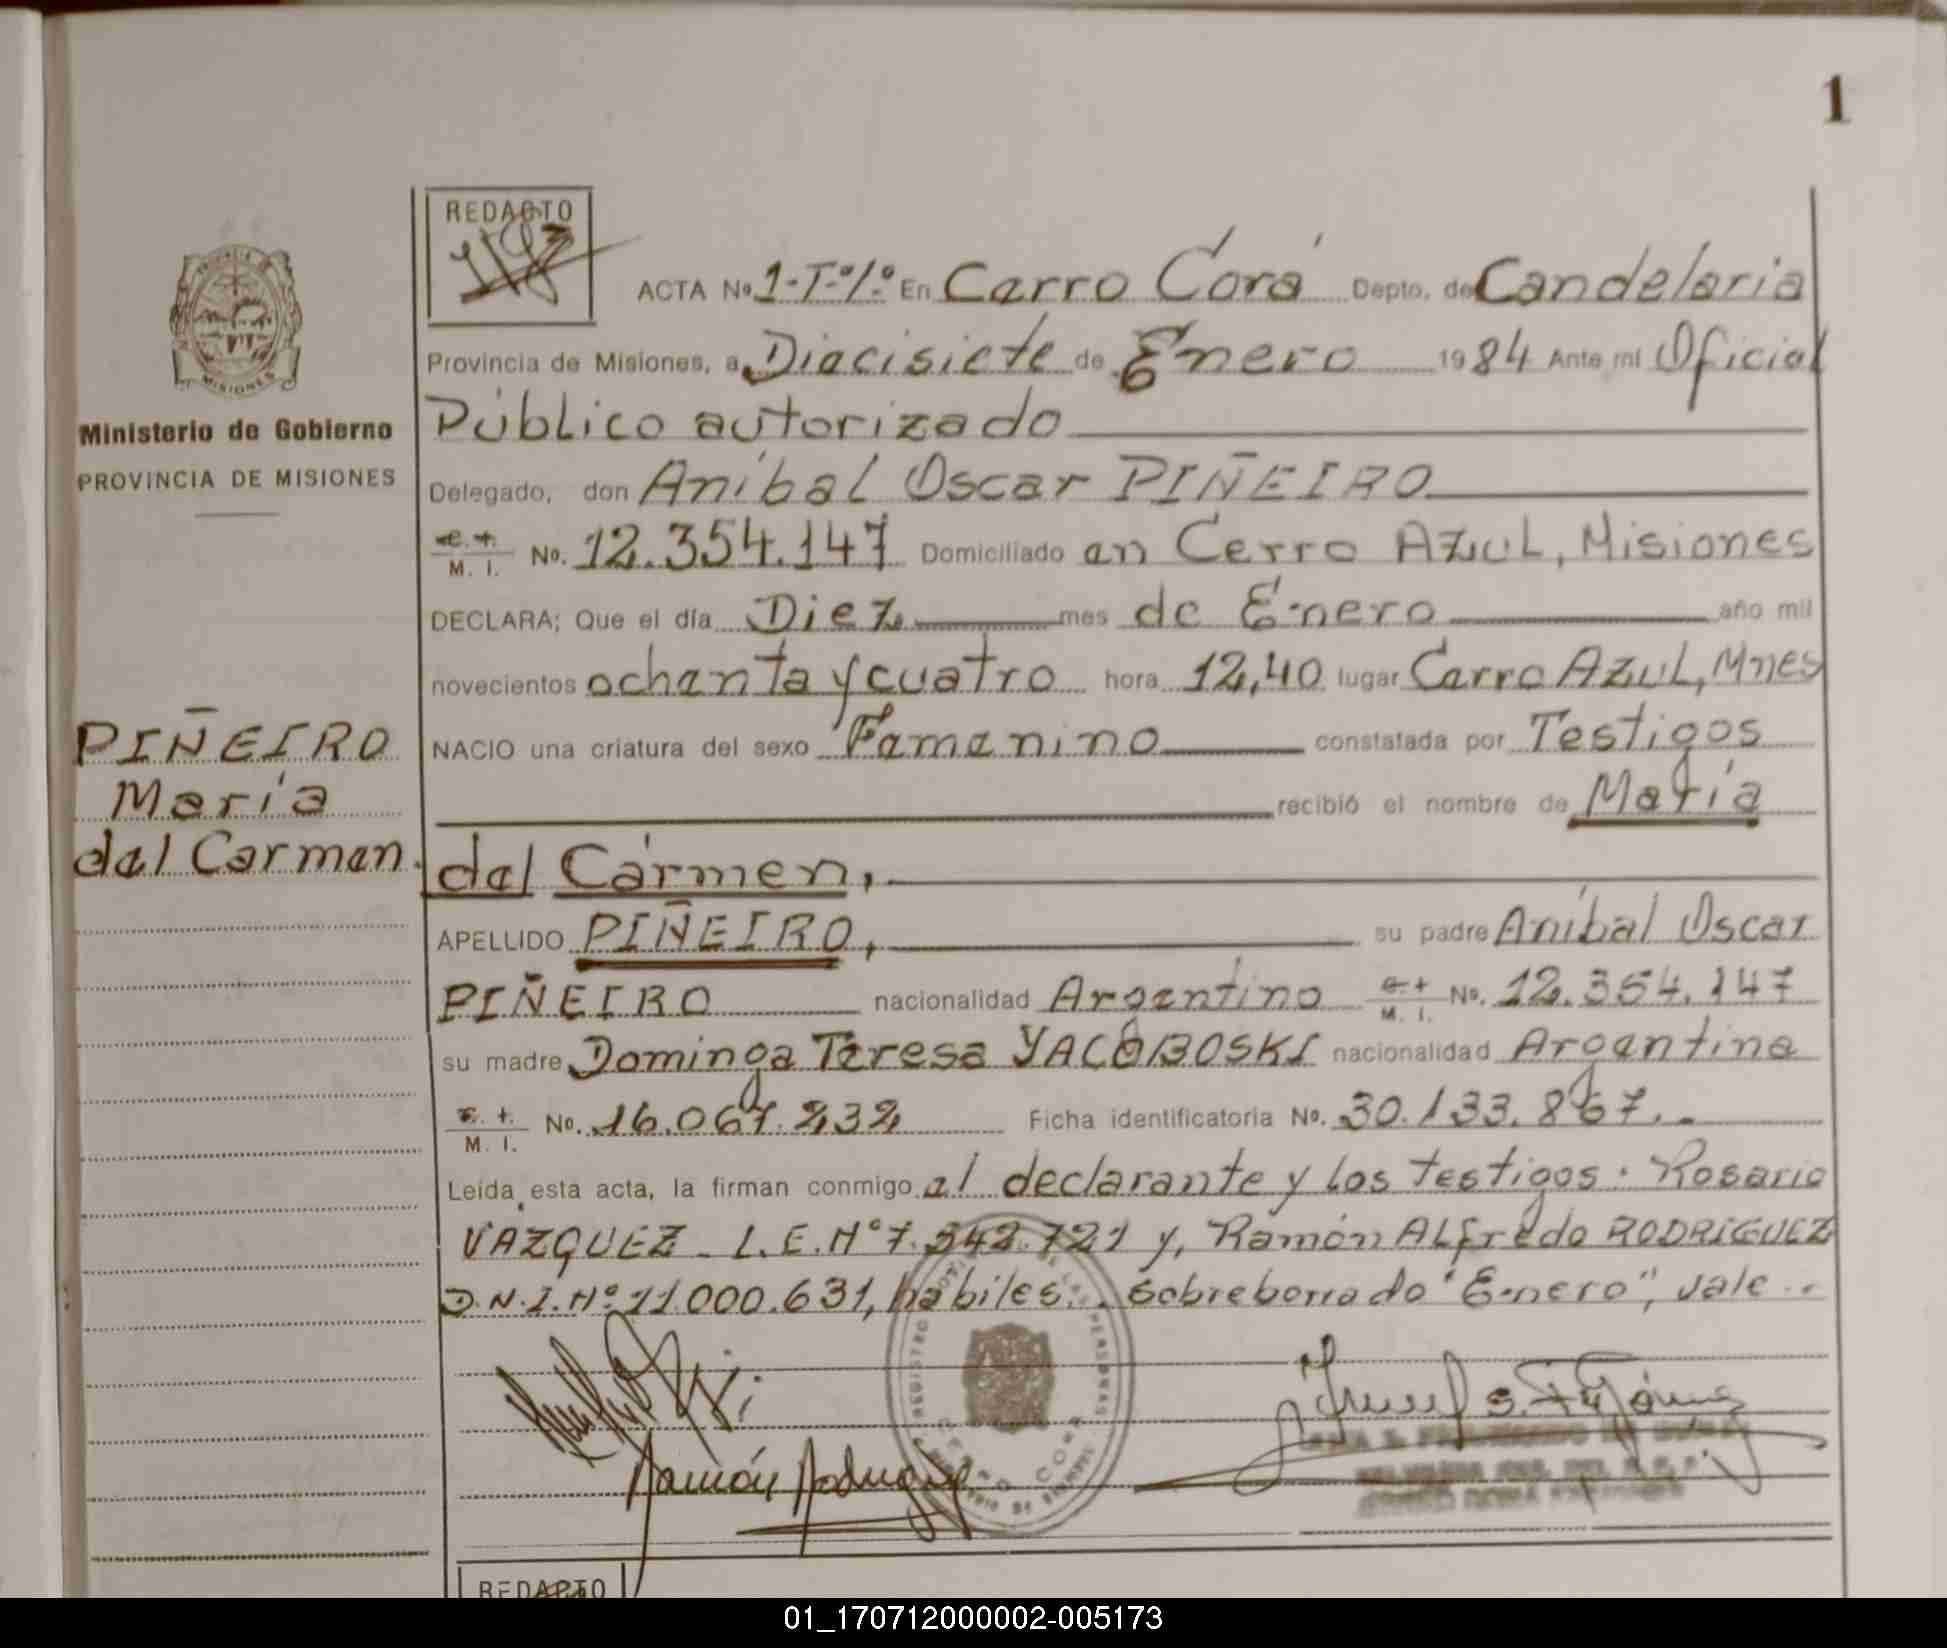 1
REDACTO
ACTA No. 1-Tº1º En Cerro Corá Depto. de Candelaria
Provincia de Misiones, a Diecisiete de Enero 1984 Ante mí Oficial
MISIONES
Ministerio de Gobierno
PROVINCIA DE MISIONES
Público autorizado
Delegado, don Aníbal Oscar PIÑEIRO
C. I. M. I. No. 12.354.147 Domiciliado en Cerro AZUL, Misiones
DECLARA; Que el día Diez mes de Enero año mil
novecientos ochenta y cuatro hora 12,40 lugar Cerro AZUL, Mnes
NACIO una criatura del sexo Femenino constatada por Testigos
recibió el nombre de María
PIÑEIRO
María
del Carmen.
del Cármen,
APELLIDO PIÑEIRO, su padre Aníbal Oscar
PIÑEIRO nacionalidad Argentino M. I. No. 12.354.147
su madre Dominga Teresa YACOBOSKI nacionalidad Argentina
M. I. No. 16.067.232 Ficha identificatoria No. 30.133.867.-
Leída esta acta, la firman conmigo el declarante y los testigos: Rosario
VAZQUEZ - L.E. Nº 7.542.721 y, Ramón ALfredo RODRIGUEZ
D.N.I. Nº 11.000.631, hábiles. Sobreborrado "Enero", vale..
REGISTRO DE LAS PERSONAS
CERRO CORA
Ramón Rodriguez
REDACTO
01_170712000002-005173